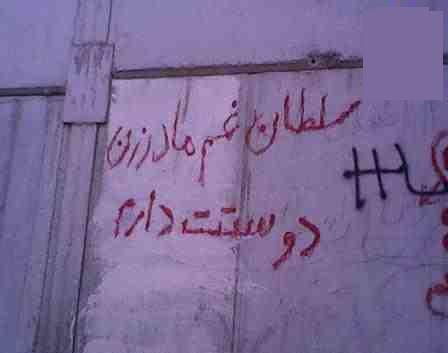 سلطان غم مادرزن
دوستت دارم